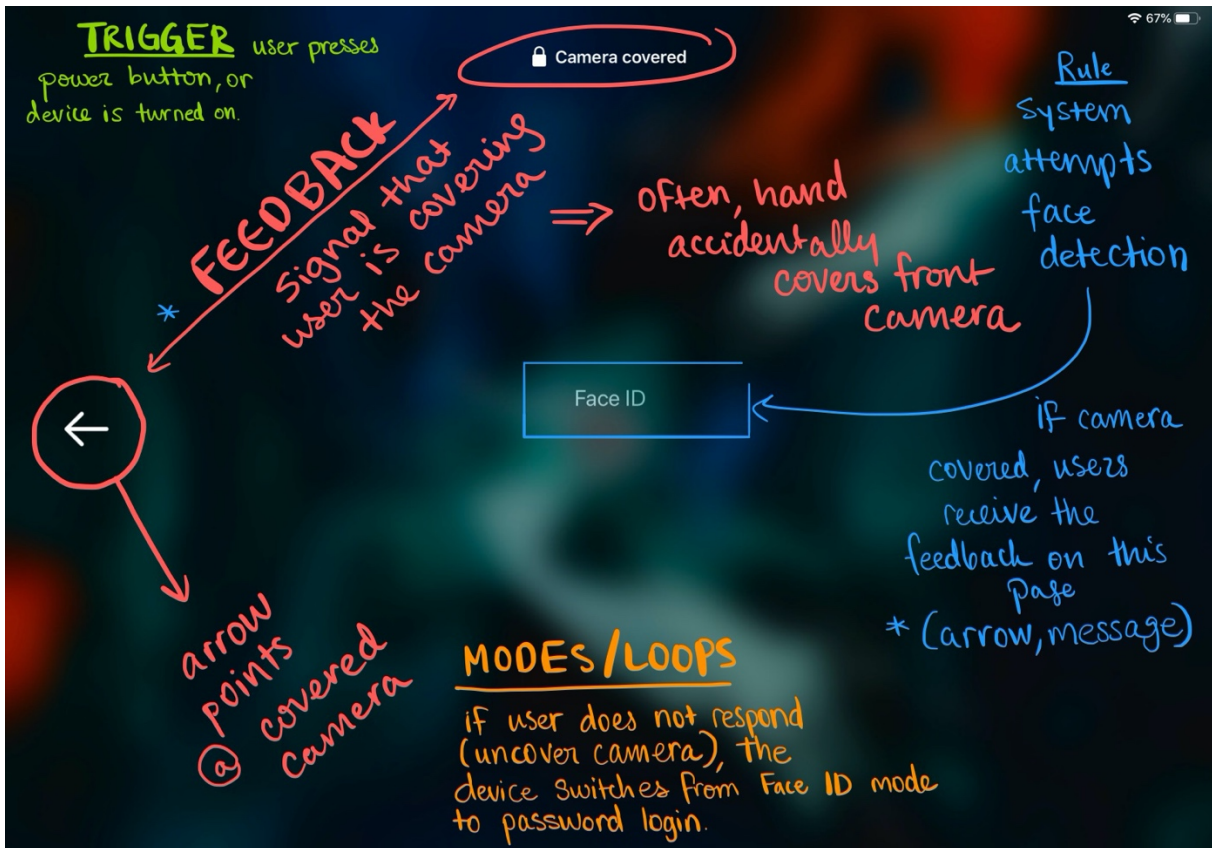 TRIGGER user presses
power button, or
device is turned on.
Camera covered
67%
FEEDBACK
signal that
user is covering
the camera
⇒ often, hand
accidentally
covers front
camera
Rule
System
attempts
face
detection
Face ID
if camera
covered, users
receive the
feedback on this
page
* (arrow, message)
*
←
arrow
points
@ covered
camera
MODES/LOOPS
if user does not respond
(uncover camera), the
device switches from Face ID mode
to password login.